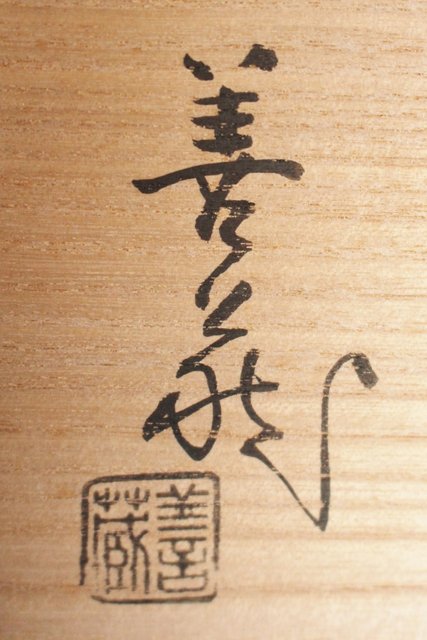 善蔵
善蔵